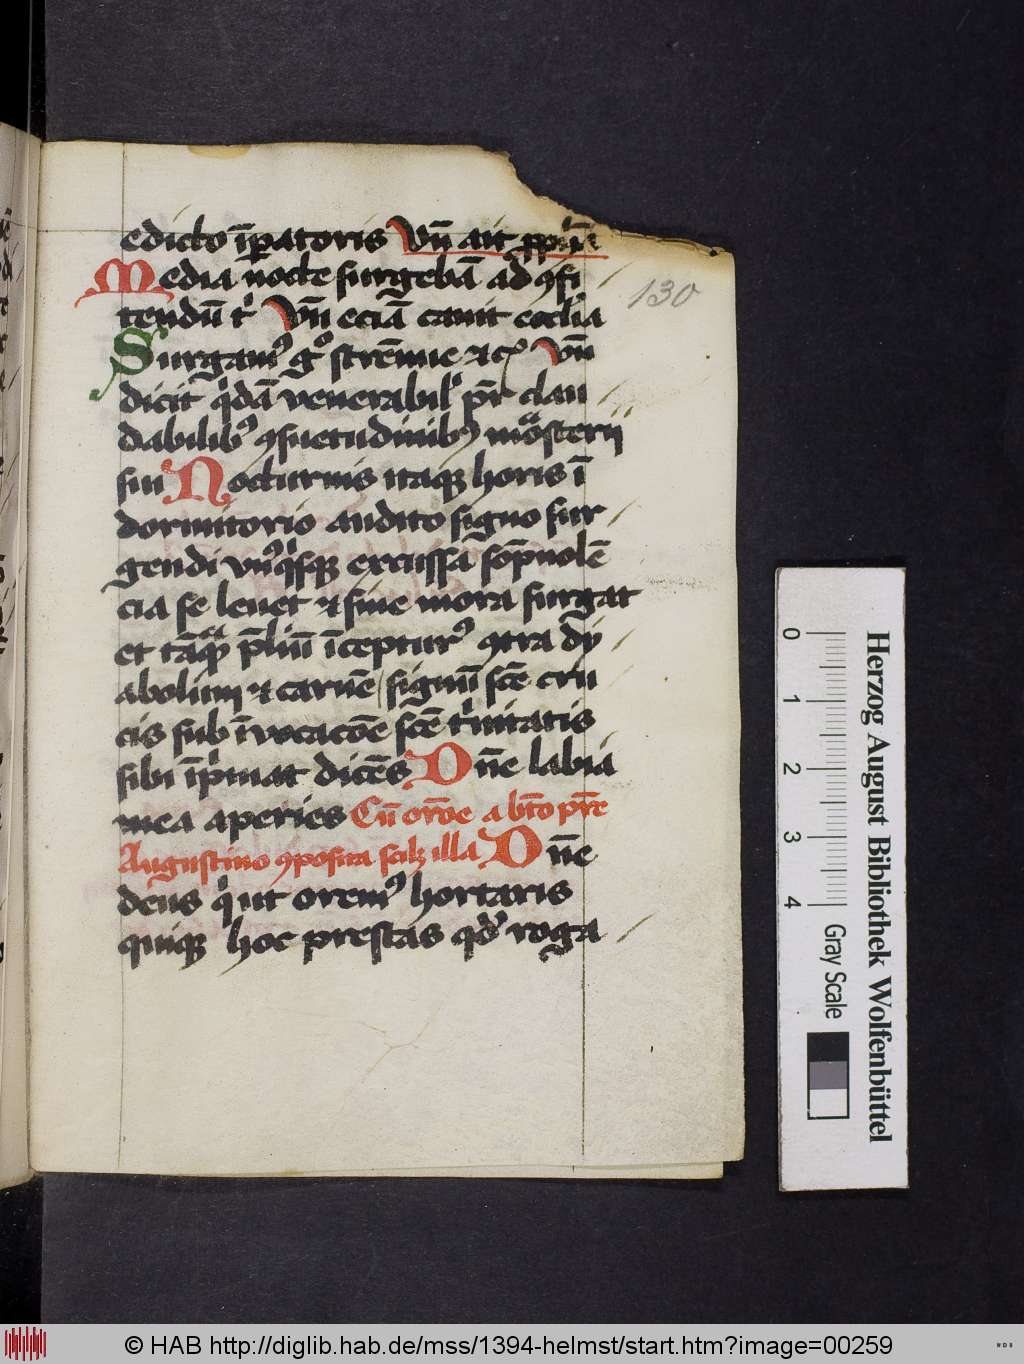 edicto īꝑatoris Vn̄ ait ꝓph̄a
Media nocte surgebā ad ꝯfi
tendū tͥ Vn̄ eciā canit eccl̓ia
Surgamꝰ gͦ strēnue ⁊cꝭ Vn̄
dicit qͥdā venerabilꝭ pr̄ clau
dabilibꝰ ꝯsuetudinibꝰ moͣsterij
sui Nocturnis itaqꝫ horis ī
dormitorio audito signo sur
gendi vnꝰqͥsqꝫ excussa so̅pnolē
cia se leuet ⁊ sine mora surgat
et tāqꝫ p̄liū īcepturꝰ ꝯtra dy
abolum ⁊ carnē signū scē cru
cis sub īvocacōe scē tͥnitatis
sibi īpͥmat dicēs Dn̄e labia
mea aperies Cū orōe a bt̄o pr̄e
Augustino ꝯposita scilꝫ illa Dn̄e
deus qͥ ut oremꝰ hortaris
quiqꝫ hoc prestas qd̓ roga
130
0 1 2 3 4
Gray Scale
Herzog August Bibliothek Wolfenbüttel
© HAB http://diglib.hab.de/mss/1394-helmst/start.htm?image=00259